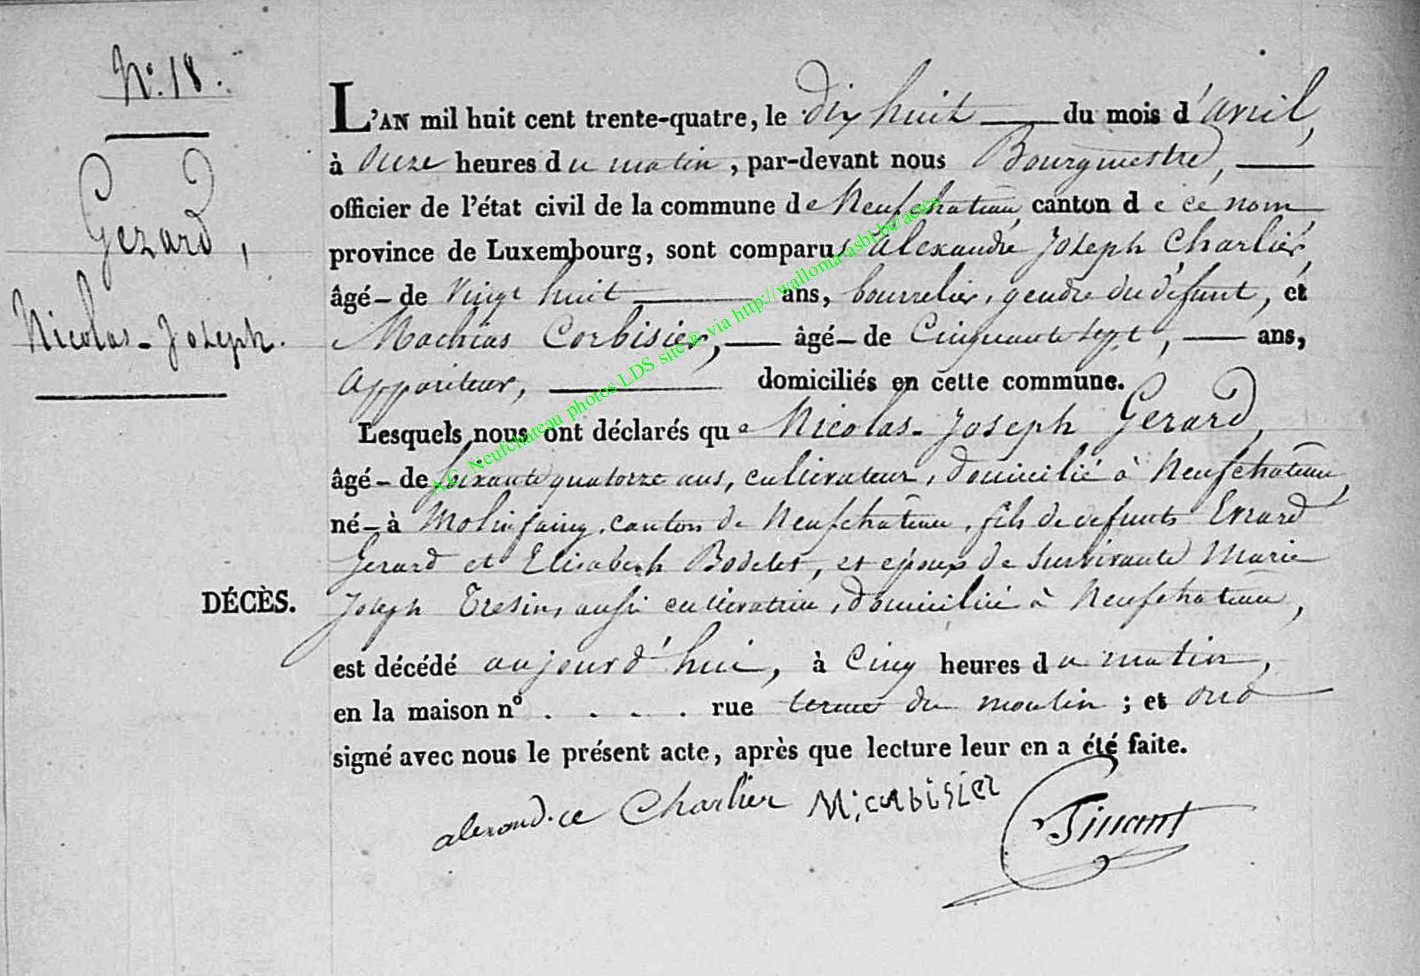 N.° 18.
Gerard,
Nicolas-Joseph.
DÉCÈS.
L'AN mil huit cent trente-quatre, le dix huit du mois d'avril,
à onze heures du matin, par-devant nous Bourgmestre,
officier de l'état civil de la commune de Neufchateau canton de ce nom
province de Luxembourg, sont comparus alexandre Joseph Charlier,
âgé-de vingt huit ans, bourrelier, gendre du défunt, et
Mathias Corbisier, âgé-de Cinquante sept, ans,
appariteur, domiciliés en cette commune.
Lesquels nous ont déclarés que Nicolas-Joseph Gerard,
âgé-de soixante quatorze ans, cultivateur, domicilié à Neufchateau,
né-à Molinfaing, canton de Neufchateau, fils de defunts Errard
Gerard et Elisabeth Bodelet, et epoux de survivante Marie
Joseph Tresin, aussi cultivatrice, domiciliée à Neufchateau,
est décédé aujourd'hui, à Cinq heures du matin,
en la maison n° . . . . rue terme du moulin ; et ont
signé avec nous le présent acte, après que lecture leur en a été faite.
alexandre Charlier M; corbisier Tinant
A.C. Neufchateau photos LDS site @ via http://wallonia-asbl.be/actes